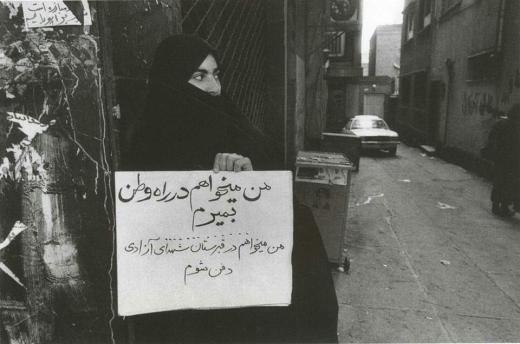 من میخواهم در راه وطن
بمیرم
من میخواهم در قبرستان شهدای آزادی
دفن شوم